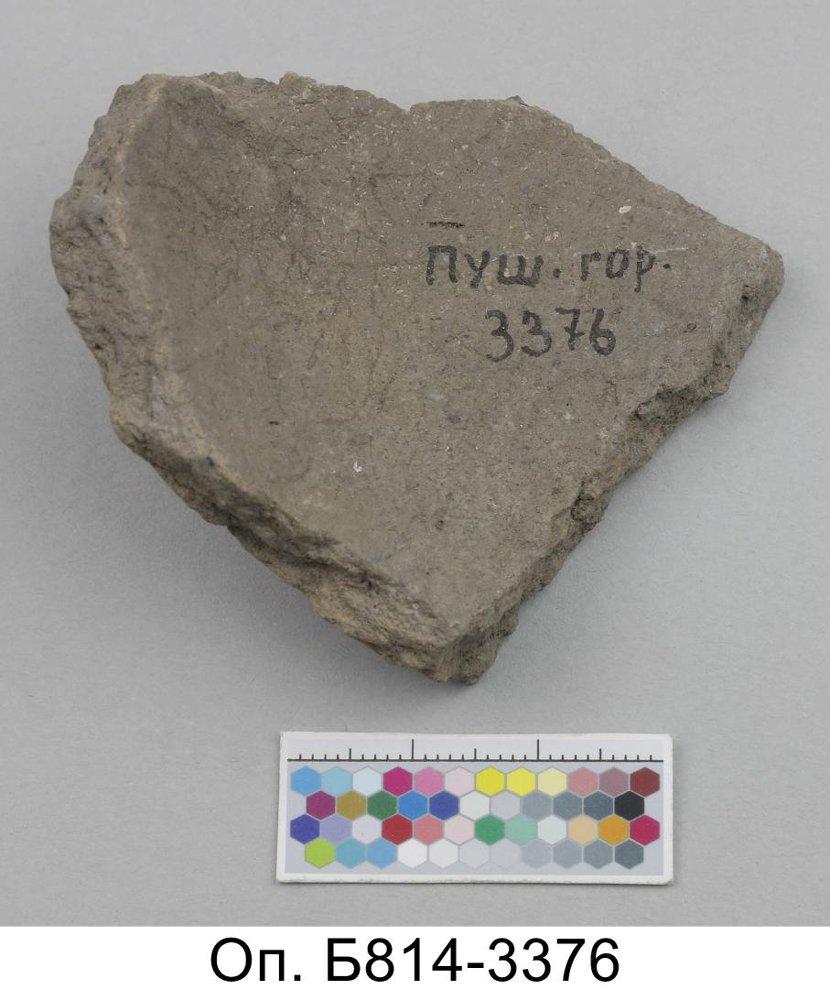 Пуш. гор.
3376
Оп. Б814-3376